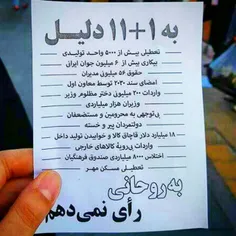 به ۱+۱۱ دلیل
تعطیلی بیش از ۵۰۰۰ واحد تولیدی
بیکاری بیش از ۶ میلیون جوان ایرانی
حقوق ۵۶ میلیون مدیران
امضای سند ۲۰۳۰ توسط معاون اول
واردات ۲۰۰ میلیونی دختر مظلوم وزیر
وزیران هزار میلیاردی
بی‌توجهی به محرومین و مستضعفان
دولتمردان پیر و خسته
۱۸ میلیارد دلار قاچاق کالا و خوابیدن تولید داخل
واردات بی‌رویهٔ کالاهای خارجی
اختلاس ۸۰۰۰ میلیاردی صندوق فرهنگیان
تعطیلی مسکن مهر
به روحانی
رأی نمی‌دهم